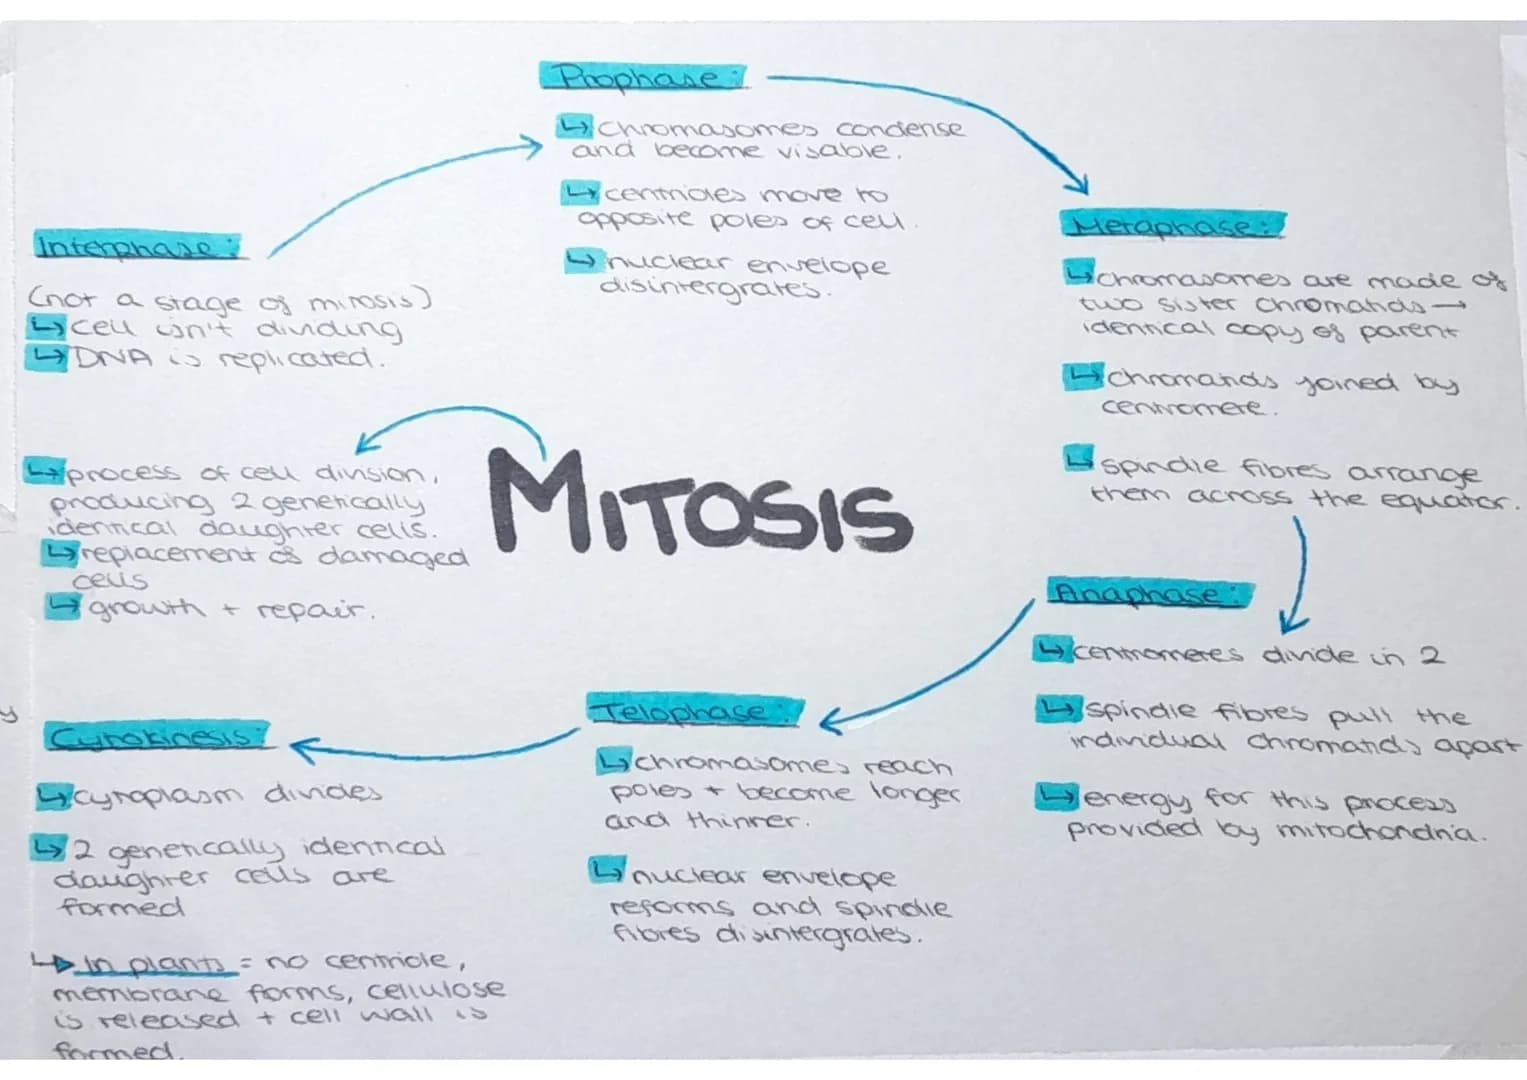 Prophase:
↳ chromasomes condense
and become visable.
↳ centrioles move to
opposite poles of cell.
↳ nuclear envelope
disintergrates.
Interphase:
(not a stage of mitosis)
↳ cell isn't dividing
↳ DNA is replicated.
Metaphase:
↳ chromasomes are made of
two sister chromatids →
identical copy of parent
↳ chromatids joined by
centromere.
↳ spindle fibres arrange
them across the equator.
MITOSIS
↳ process of cell division,
producing 2 genetically
identical daughter cells.
↳ replacement of damaged
cells
↳ growth + repair.
Anaphase:
↳ centromeres divide in 2
↳ spindle fibres pull the
individual chromatids apart
↳ energy for this process
provided by mitochondria.
Telophase:
↳ chromasomes reach
poles + become longer
and thinner.
↳ nuclear envelope
reforms and spindle
fibres disintergrates.
Cytokinesis:
↳ cytoplasm divides
↳ 2 genetically identical
daughter cells are
formed
↳ In plants = no centriole,
membrane forms, cellulose
is released + cell wall is
formed.